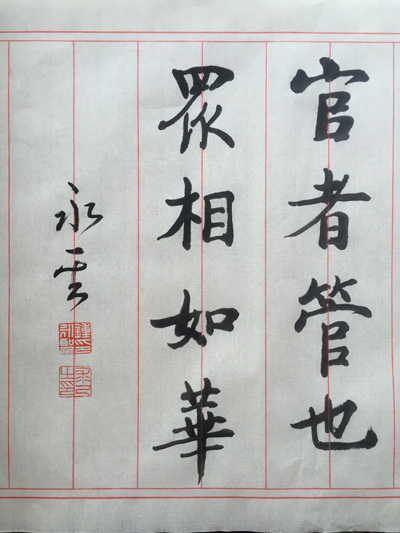 官者管也
眾相如華
永雲